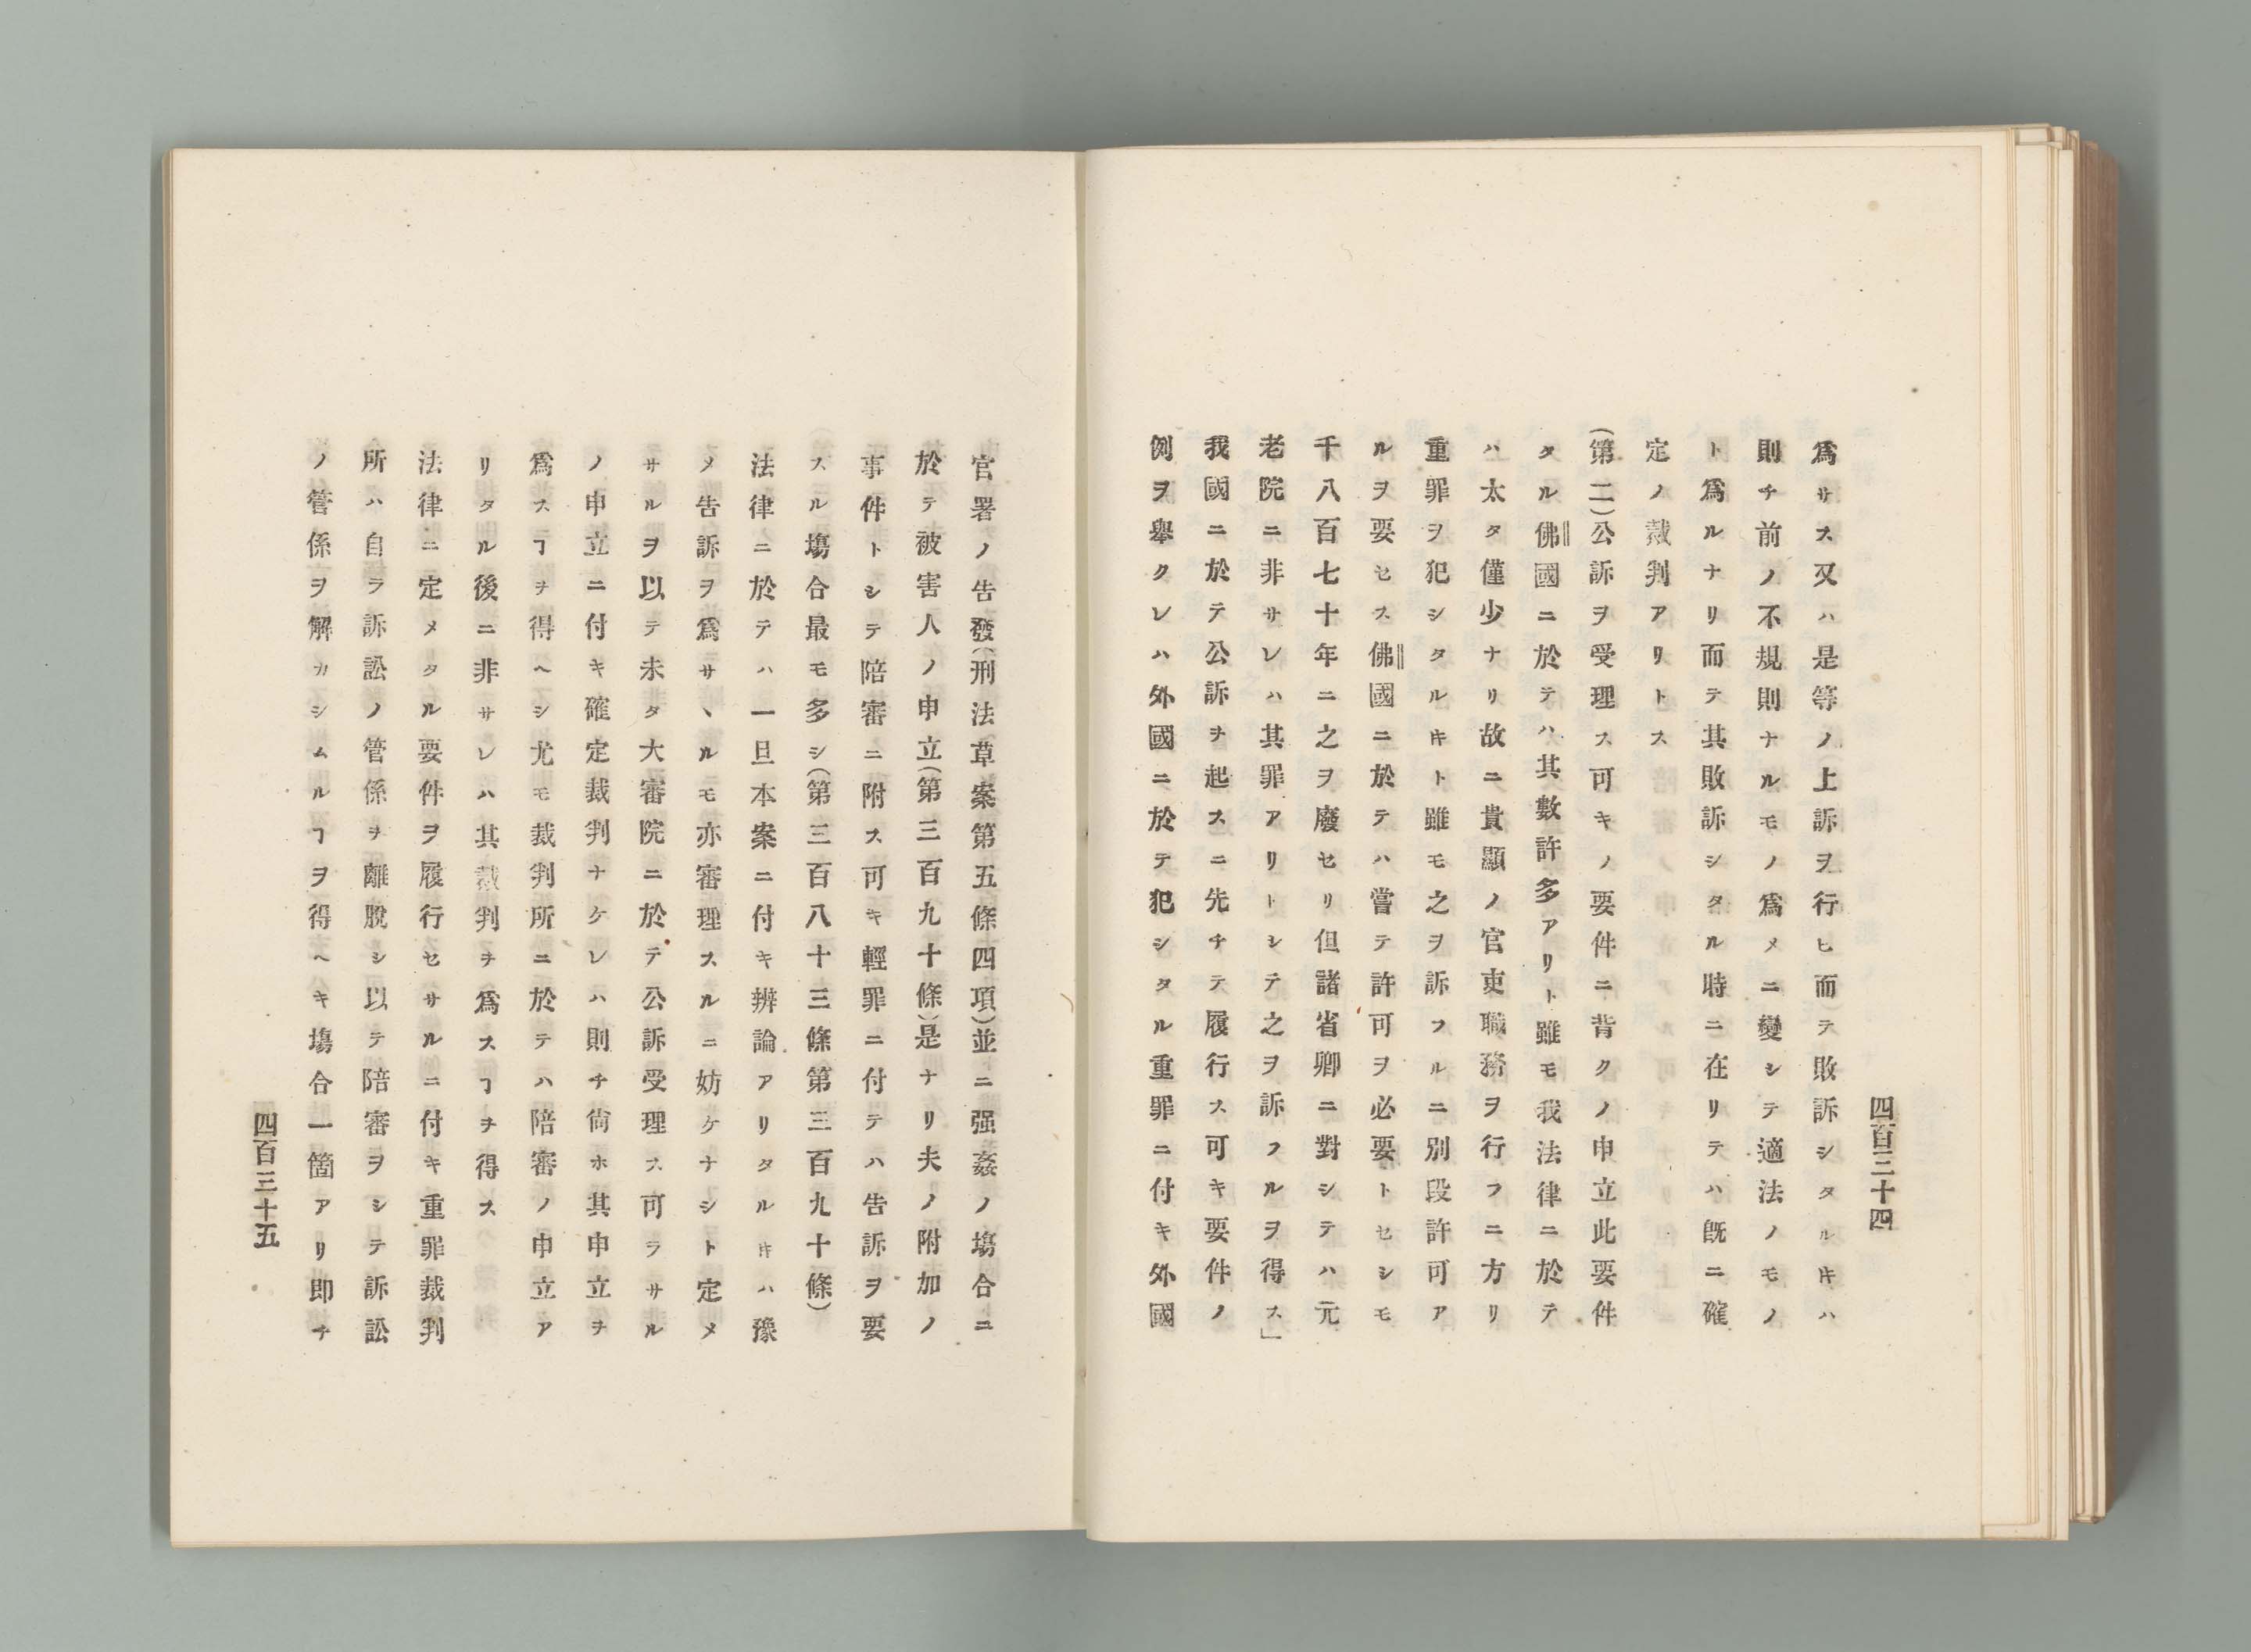 四百三十四
爲サス又ハ是等ノ上訴ヲ行ヒ而テ敗訴シタルキハ
則チ前ノ不規則ナルモノ爲メニ變シテ適法ノモノ
ト爲ルナリ而テ其敗訴シタル時ニ在リテハ既ニ確
定ノ裁判アリトス
(第二)公訴ヲ受理ス可キノ要件ニ背クノ申立此要件
タル佛國ニ於テハ其數許多アリト雖モ我法律ニ於テ
ハ太タ僅少ナリ故ニ貴顯ノ官吏職務ヲ行フニ方リ
重罪ヲ犯シタルキト雖モ之ヲ訴フルニ別段許可ア
ルヲ要セス佛國ニ於テハ嘗テ許可ヲ必要トセシモ
千八百七十年ニ之ヲ廢セリ但諸省卿ニ對シテハ元
老院ニ非サレハ其罪アリトシテ之ヲ訴フルヲ得ス」
我國ニ於テ公訴ヲ起スニ先チテ履行ス可キ要件ノ
例ヲ擧クレハ外國ニ於テ犯シタル重罪ニ付キ外國
官署ノ告發(刑法草案第五條四項)並ニ强姦ノ塲合ニ
於テ被害人ノ申立(第三百九十條)是ナリ夫ノ附加ノ
事件トシテ陪審ニ附ス可キ輕罪ニ付テハ告訴ヲ要
スル塲合最モ多シ(第三百八十三條第三百九十條)
法律ニ於テハ一旦本案ニ付キ辨論アリタルキハ豫
メ告訴ヲ爲サヽルモ亦審理スルニ妨ケナシト定メ
サルヲ以テ未タ大審院ニ於テ公訴受理ス可ラサル
ノ申立ニ付キ確定裁判ナケレハ則チ尙ホ其申立ヲ
爲スヿヲ得ヘシ尤モ裁判所ニ於テハ陪審ノ申立ア
リタル後ニ非サレハ其裁判ヲ爲スヿヲ得ス
法律ニ定メタル要件ヲ履行セサルニ付キ重罪裁判
所ハ自ラ訴訟ノ管係ヲ離脫シ以テ陪審ヲシテ訴訟
ノ管係ヲ解カシムルヿヲ得ヘキ塲合一箇アリ即チ
四百三十五